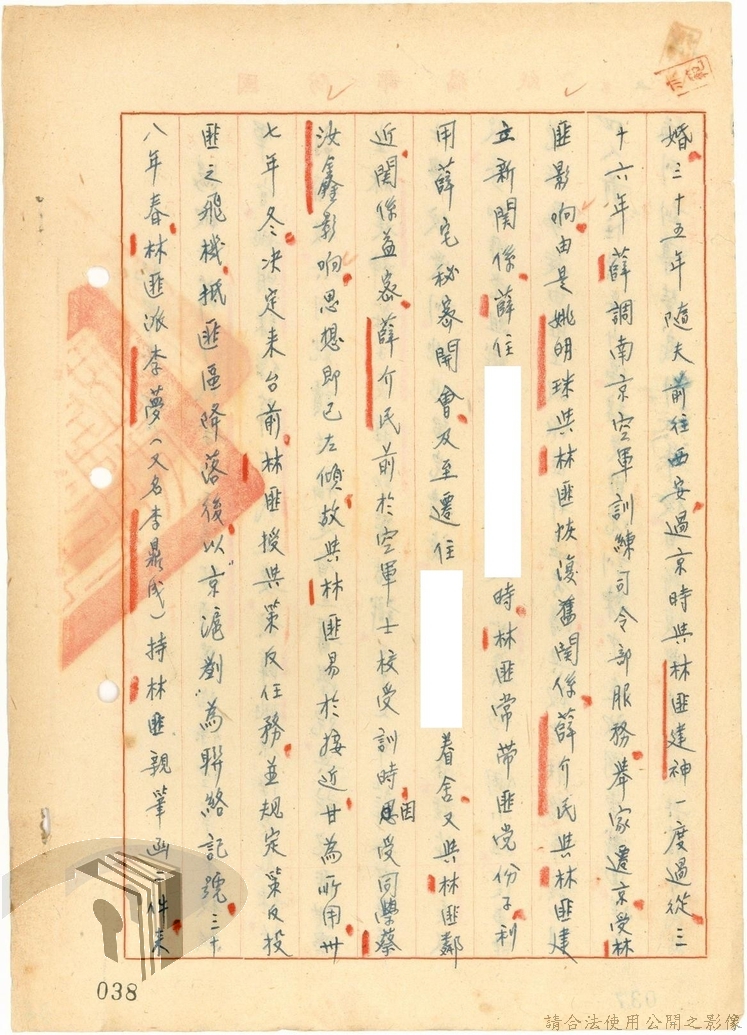 婚三十五年隨夫前往西安過京時與林匪建神一度過從三
十六年薛調南京空軍訓練司令部服務舉家遷京受林
匪影响由是姚明珠與林匪恢復舊関係薛介民與林匪建
立新関係薛住 時林匪常帶匪党份子利
用薛宅秘密開會及至遷住 眷舍又與林匪鄰
近関係益密薛介民前於空軍士校受訓時因受同學蔡
汝鑫影响思想即已左傾故與林匪易於接近甘為所用卅
七年冬决定来台前林匪授與策反任務並規定策反投
匪之飛機抵匪區降落後以"京滬劉"為聯絡記號三十
八年春林匪派李夢(又名李鼎成)持林匪親筆函二件来
038
請合法使用公開之影像